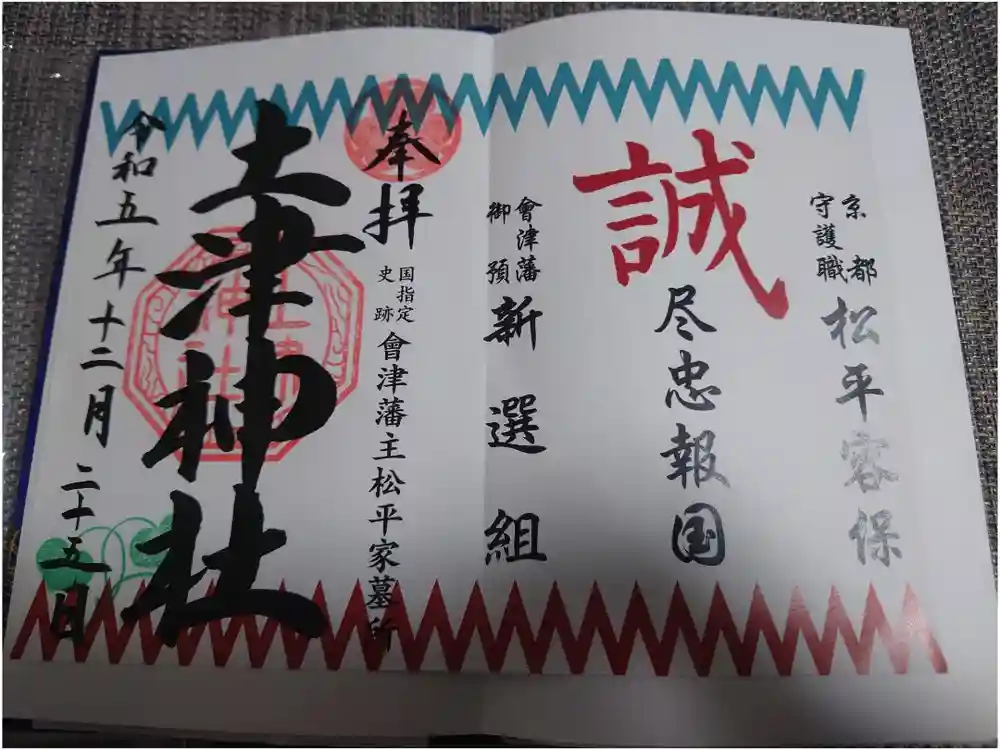 京都
守護職
松平容保
誠
尽忠報国
會津藩
御預
新選組
奉拝
国指定
史跡
會津藩主松平家墓所
土津神社
土津
神社
令和五年十二月二十五日